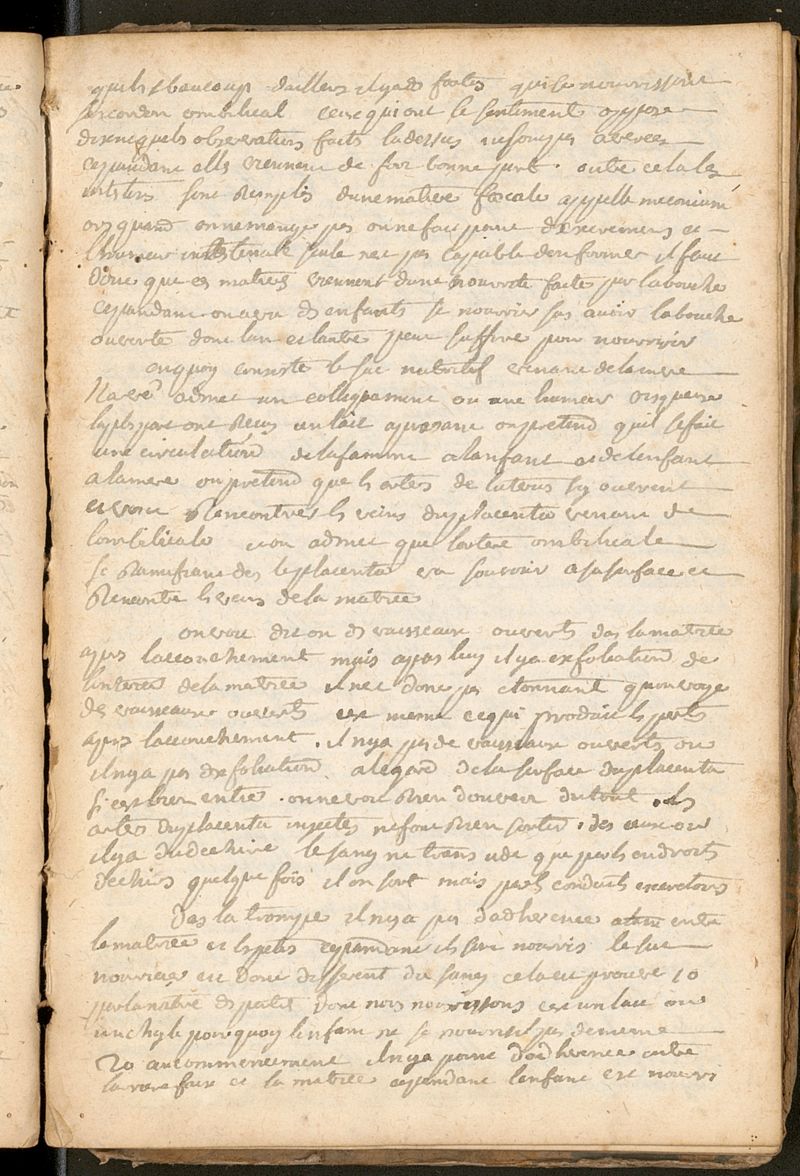 beaucoup dailleurs il y a des foetus qui se nourrissent
cordon ombilical ceux qui ont le sentiment oppose
disent quels observations faits ladessus
cependant elle viennent de fort bonne part . outre cela les
intestins sont remplis dune matiere foecale appelle meconium
or quand on ne mange pas on ne fait point dexcremens et
lhumeur intestinale seule nest pas capable den former il faut
donc que ces matieres viennent dune nourrite faite par la bouche
cependant on a vu ds enfants se nourrir sas avoir la bouche
ouverte donc lun et lautre peut suffire pour nourrir
en quoy consiste le suc nutritif venant de la mere
admet un colliquament ou une humeur visqueuse
la plspart ont un lait apresant on pretend quil se fait
une circulation de la famme a lanfant et de lenfant
a la mere on pretend que ls artes de luterus sy ouvrent
et vont rencontrer ls veins du placenta venant de
lombilicale on admet que lartere ombilicale
se ramifiant ds le placenta va souvrir a sa surface et
rencontre ls veins de la matrice
on voit dit on ds vaisseaux ouverts das la matrice
aprs laccouchement mais apres luy il y a exfoliation de
linterieur de la matrice il nest donc ps etonnant quon voye
des vaisseaux ouverts cest meme ce qui produit ls perts
aprs laccouchement . il ny a ps de vaisseaux ouverts ou
il ny a ps dexfoliation a legard de la surface du placenta
sil est bien entier . on ne voit rien douvert du tout . ls
artes du placenta injectes ne font rien sortir . des ceux ou
il y a du dechire le sang ne transude que par ls endroits
dechires quelque fois il en sort mais par ls conduits excretoirs
Das la trompe il ny a ps dadherence entre
la matrice et ls petits cependant ils sont nourris le suc
nourricier est donc different du sang cela est prouvé 1o
par la nature ds petits dont nous nourissons cest un lait ou
un chyle pourquoy lenfant ne se nourriroit il pas de meme
2o au commencement il ny a point dadherence entre
et la matrice cependant lenfant est nourri